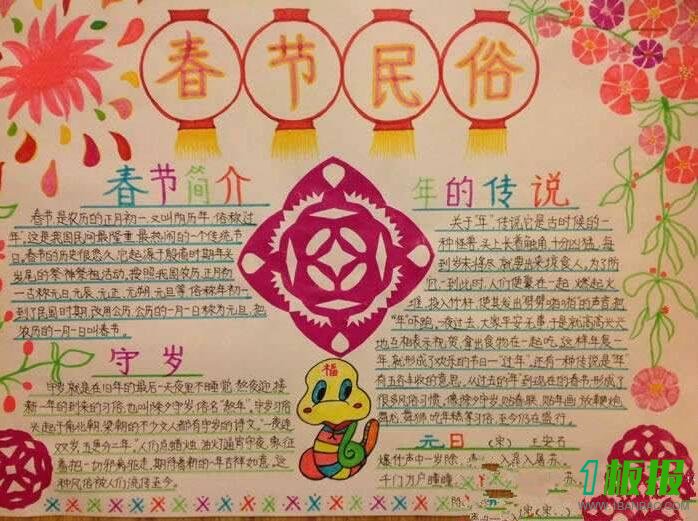 春节民俗
春节简介
春节是农历的正月初一,又叫阴历年,俗称过
年",这是我国民间最隆重、最热闹的一个传统节
日。春节的历史很悠久,它起源于殷商时期年头
岁尾的祭神祭祖活动,按照我国农历,正月初
一古称元日、元辰、元正、元朔、元旦等,俗称年初一
到了民国时期,改用公历,公历的一月一日称为元旦,把
农历的一月一日叫春节。
守岁
守岁就是在旧年的最后一天夜里不睡觉,熬夜迎接
新一年的到来的习俗,也叫除夕守岁,俗名"熬年"。守岁习俗
兴起于南北朝,梁朝的不少文人都有守岁的诗文。"一夜连
双岁,五更分二年。"人们点蜡烛,油灯通宵守夜,象征
着把一切邪瘟驱走,期待着新的一年吉祥如意,这
种风俗被人们流传至今。
年的传说
关于"年"传说它是古时候的一
种怪兽,头上长着触角,十分凶猛,每
到岁末将
到此时,人们便聚在一起,燃起火
堆,投入竹杆,使其发出劈劈啪啪的声音,把
"年"吓跑,一夜过去,大家平安无事,于是就高高兴兴
地互相表示祝贺,拿出食物在一起吃,这样年复一
年,就形成了欢乐的节日—"过年"。还有一种传说是"年"
有五谷丰收的意思,从过去的年到现在的春节,形成了
很多风俗习惯,像除夕守岁,贴春联,贴年画,放鞭炮,
舞狮,吃年糕等习俗,至今仍在盛行。
福
元日 (宋) 王安石
爆竹声中一岁除, 入屠苏。
千门万户曈曈
1板报
1BANBAO.COM